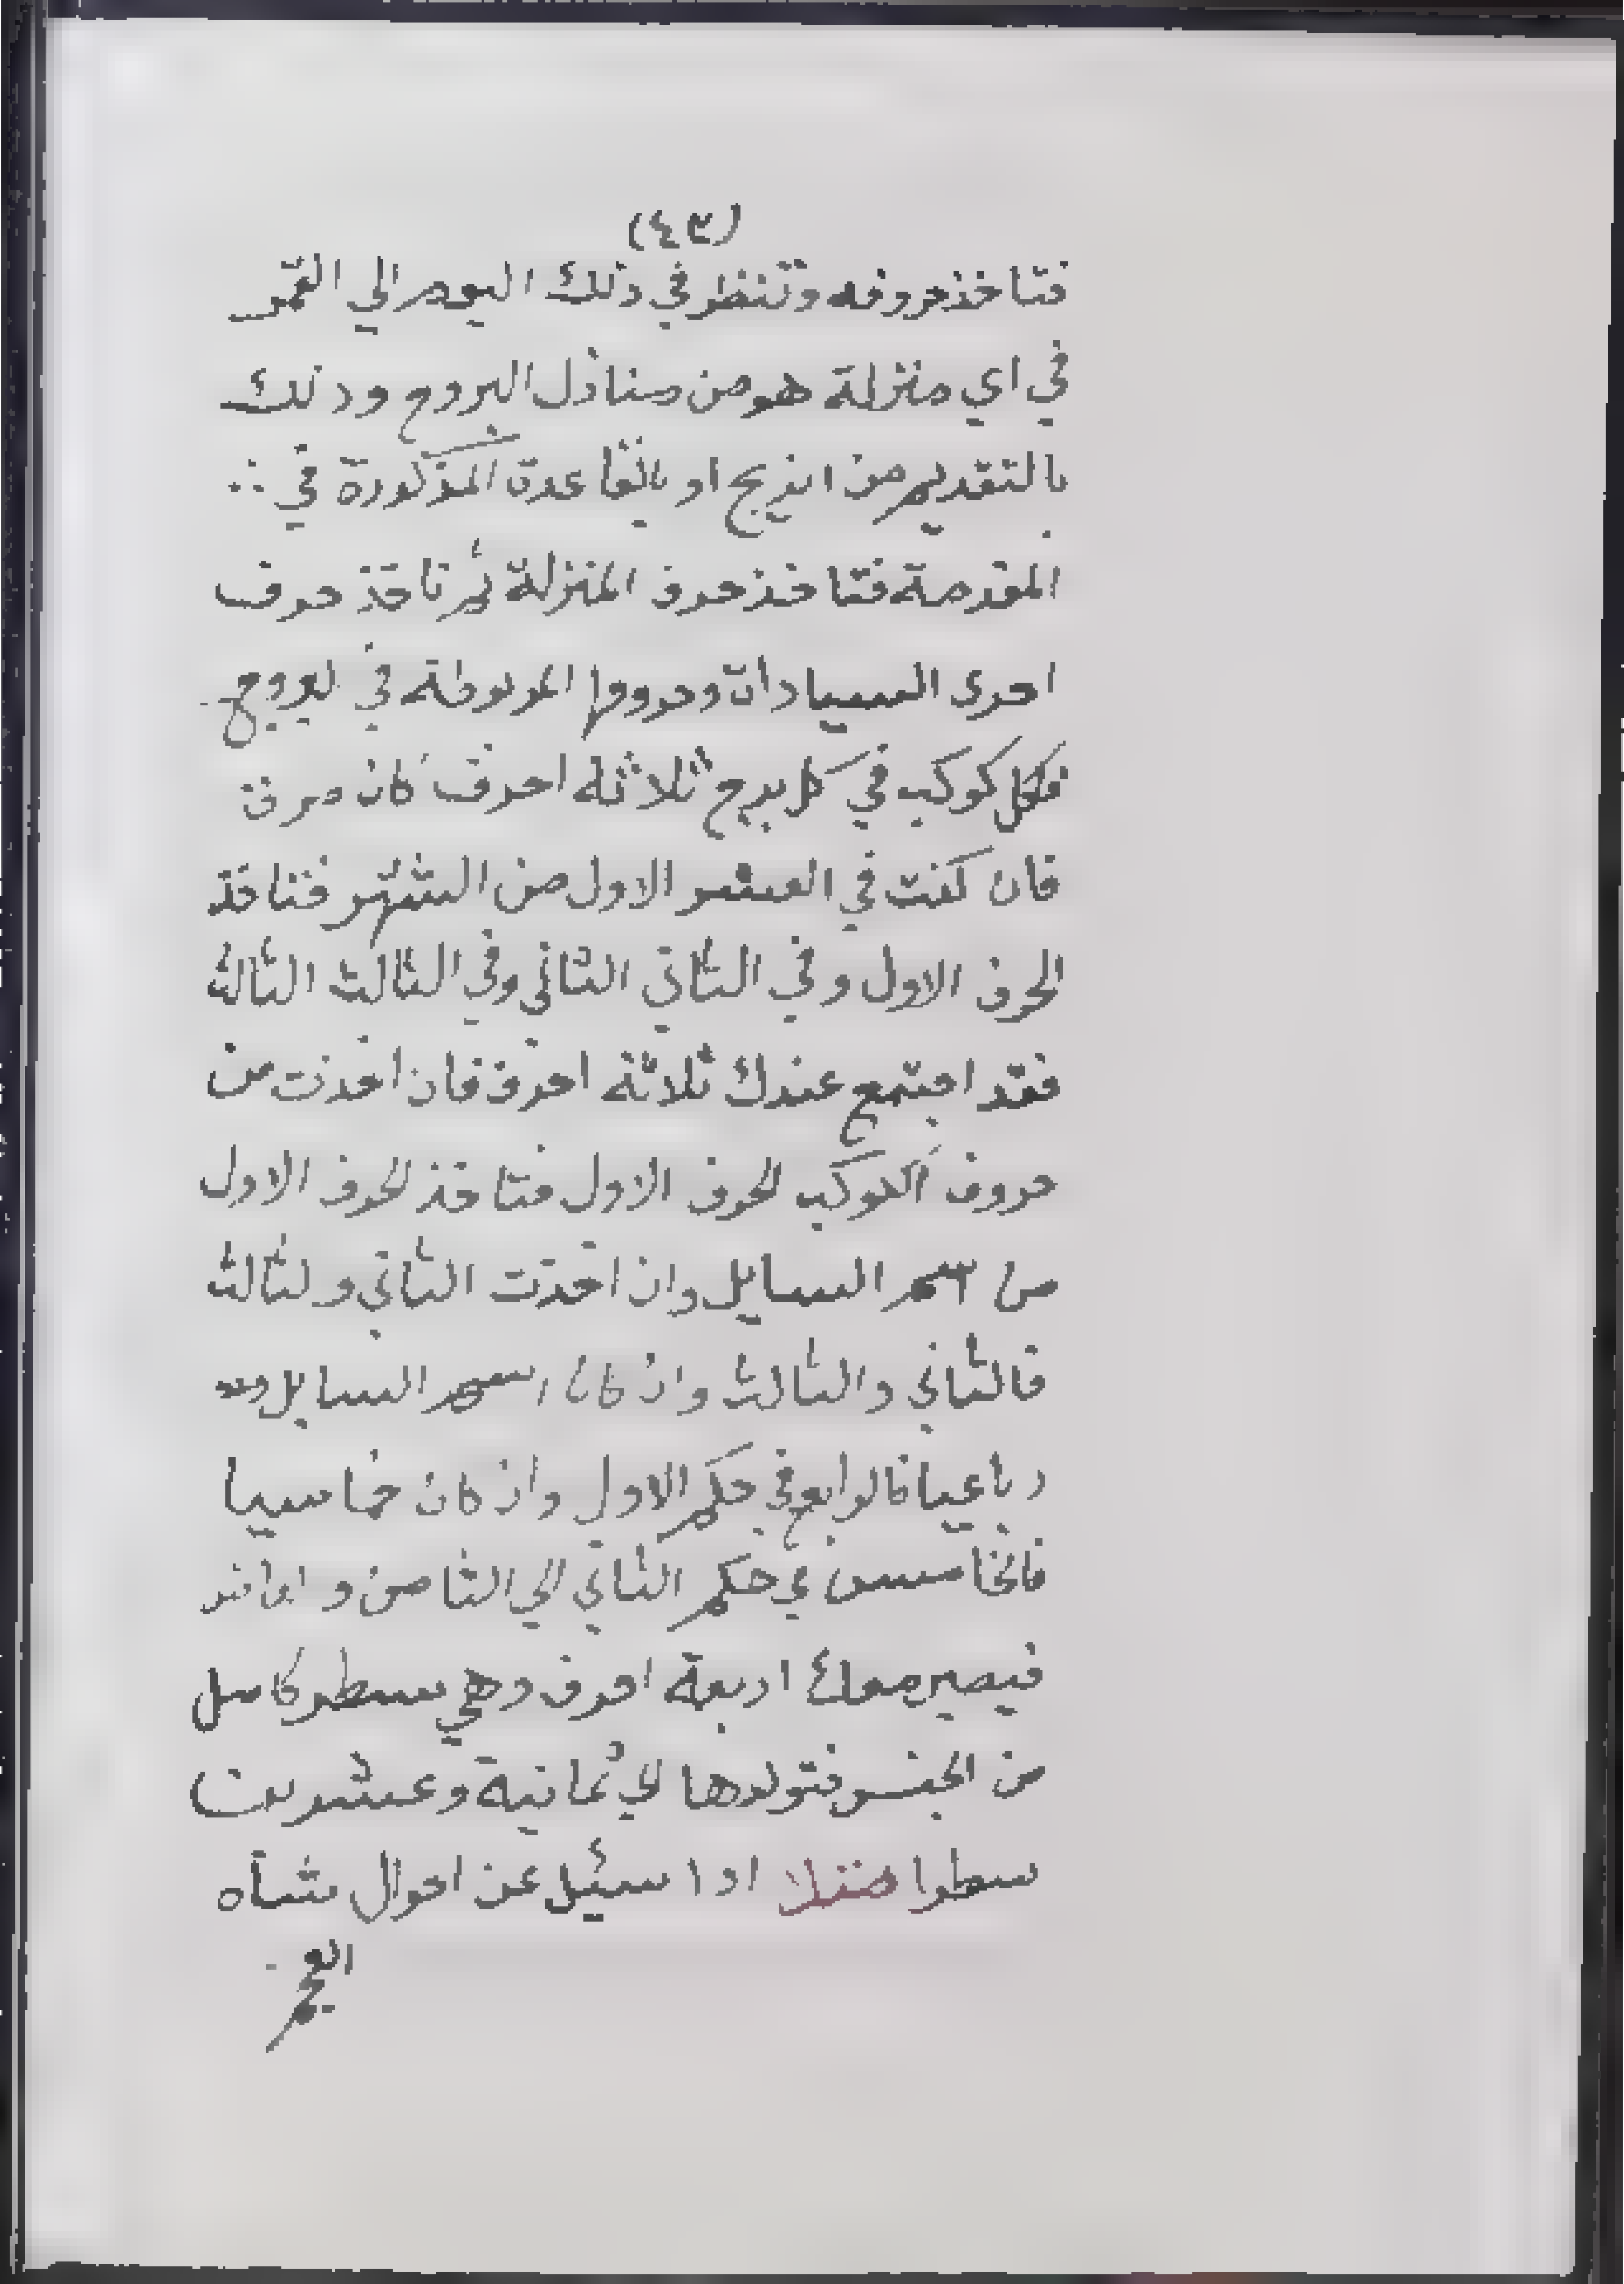 (٤٣)
فتاخذ حروفه وتنظر في ذلك اليوم الي القمر
في اي منزلة هو من منازل البروج وذلك
بالتقديم من الزيج او بالقاعدة المذكورة في
المقدمة فتاخذ حرف المنزلة ثم تاخذ حرف
احدى السيارات وحروفها المربوطة في البروج
فلكل كوكب في كل برج ثلاثة احرف كان حرف
فان كنت في العشر الاول من الشهر فتاخذ
الحرف الاول وفي الثاني الثاني وفي الثالث الثالث
فقد اجتمع عندك ثلاثة احرف فان اخذت من
حروف الكوكب الحرف الاول فتاخذ الحرف الاول
من اسم السايل وان اخذت الثاني والثالث
فالثاني والثالث وان كان اسم السايل
رباعيا فالرابع في حكم الاول وان كان خماسيا
فالخامس في حكم الثاني الي الثامن و
فيصير معك اربعة احرف وهي سطر كامل
من الجفر فتولدها الي ثمانية وعشرين
سطرا مثلا اذا سئيل عن احوال شاه
العجم